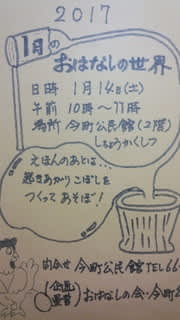 2017
1月の
おはなしの世界
日時 1月14日(土)
午前 10時〜11時
場所 今町公民館(2階)
しちょうかくしつ
えほんのあとは…
起きあがりこぼしを
つくってあそぼ!
問合せ 今町公民館TEL66
(企画運営) おはなしの会・今町